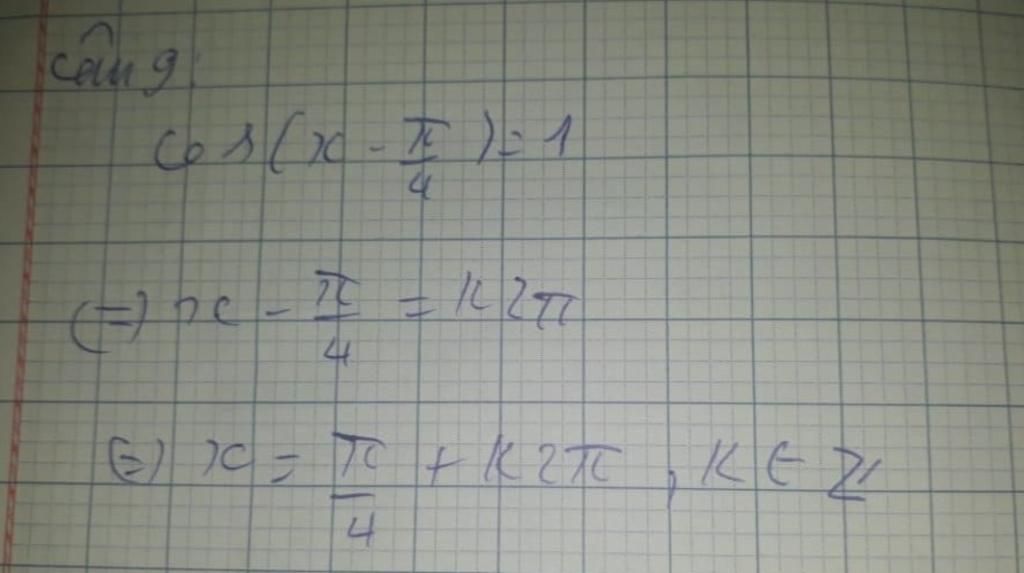 Câu 9:
cos(x - π/4) = 1
(=) x - π/4 = k2π
(=) x = π/4 + k2π, k ∈ Z